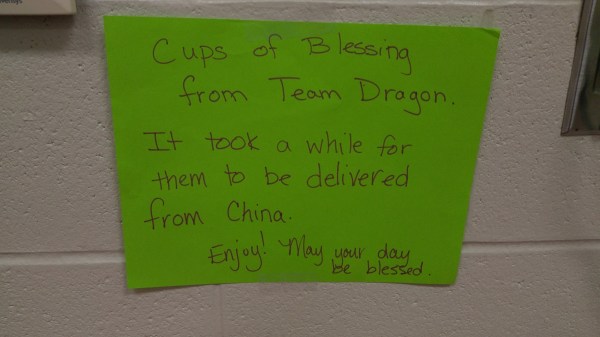 Cups of Blessing
from Team Dragon.
It took a while for
them to be delivered
from China.
Enjoy! May your day
be blessed.